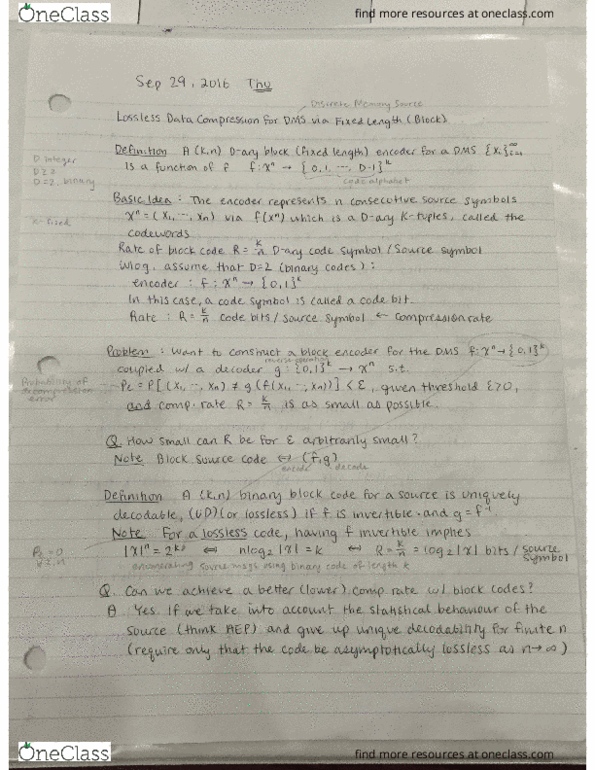 OneClass
find more resources at oneclass.com
Sep 29, 2016 Thu
Discrete Memory Source
Lossless Data Compression for DMS via Fixed Length (Block)
D integer
D≥2
D=2, binary
Definition A (k,n) D-ary block (fixed length) encoder for a DMS {Xi}∞i=1
is a function of f: Xⁿ → {0,1, ..., D-1}ᵏ
code alphabet
Basic Idea: The encoder represents n consecutive source symbols
xⁿ = (x₁, ..., xn) via f(xⁿ) which is a D-ary K-tuples, called the
codewords
Rate of block code R = k/n D-ary code symbol / source symbol
Wlog. assume that D=2 (binary codes):
encoder: f: Xⁿ → {0,1}ᵏ
In this case, a code symbol is called a code bit.
Rate: R = k/n code bits / source symbol ← compression rate
Problem: Want to construct a block encoder for the DMS f: Xⁿ → {0,1}ᵏ
reverse operation
coupled w/ a decoder g: {0,1}ᵏ → Xⁿ s.t.
Probability of
decompression
error
Pe = P[(X₁, ..., Xn) ≠ g(f(X₁, ..., Xn))] < ε, given threshold ε>0,
and comp. rate R = k/n is as small as possible.
Q. How small can R be for ε arbitrarily small?
Note Block source code ⇔ (f,g)
encode decode
Definition A (k,n) binary block code for a source is uniquely
decodable, (UD) (or lossless) if f is invertible and g = f⁻¹
Note: For a lossless code, having f invertible implies
Pe = 0
|X|ⁿ = 2ᵏ ⇔ nlog₂|X| = k ⇔ R = k/n = log₂|X| bits / source symbol
enumerating source msgs using binary code of length k
Q. Can we achieve a better (lower) comp rate w/ block codes?
A. Yes. If we take into account the statistical behaviour of the
source (think AEP) and give up unique decodability for finite n
(require only that the code be asymptotically lossless as n→∞)
OneClass
find more resources at oneclass.com